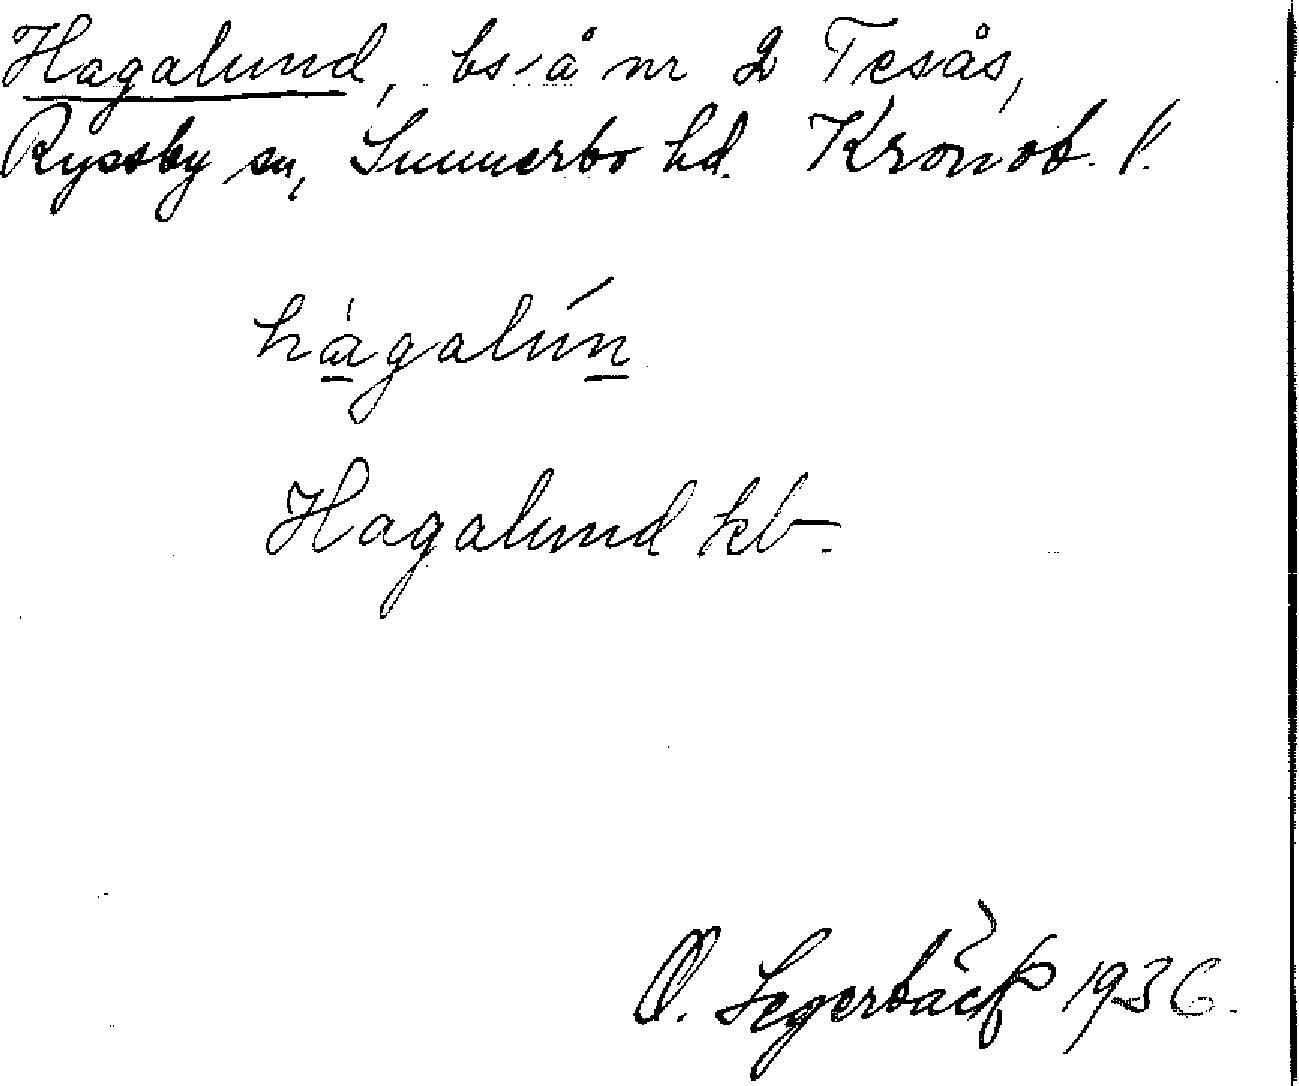 Hagalund, bs å nr 2 Tesås,
Ryssby sn, Sunnerbo hd. Kronob. l.
hàgalún
Hagalund kb.
O. Segerbäck 1936.